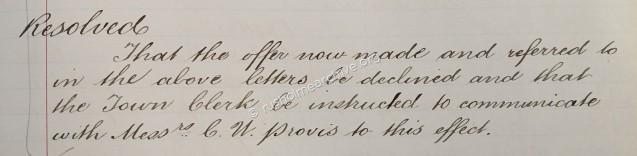 Resolved
That the offer now made and referred to
in the above letters be declined and that
the Town Clerk be instructed to communicate
with Messrs. C. W. Provis to this effect.